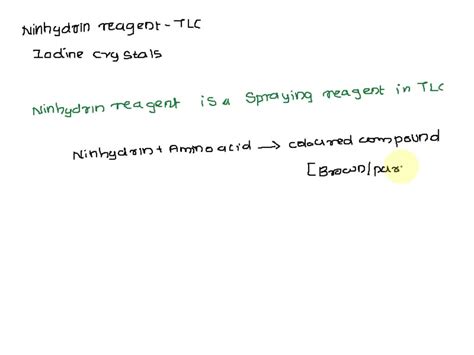 Ninhydrin reagent - TLC
Iodine crystals
Ninhydrin reagent is a spraying reagent in TLC
Ninhydrin + Amino acid → coloured compound
[Brown/pur